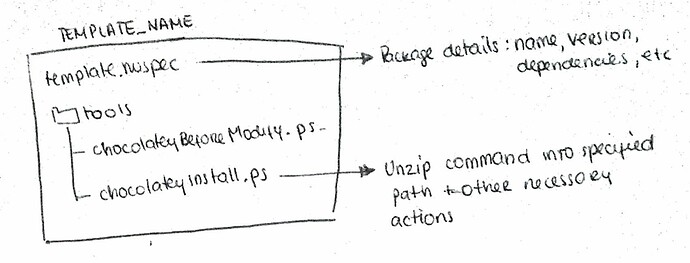 TEMPLATE_NAME
template.nuspec
Package details: name, version,
dependencies, etc
tools
chocolateyBeforeModify.ps
chocolateyinstall.ps
Unzip command into specified
path + other necessary
actions